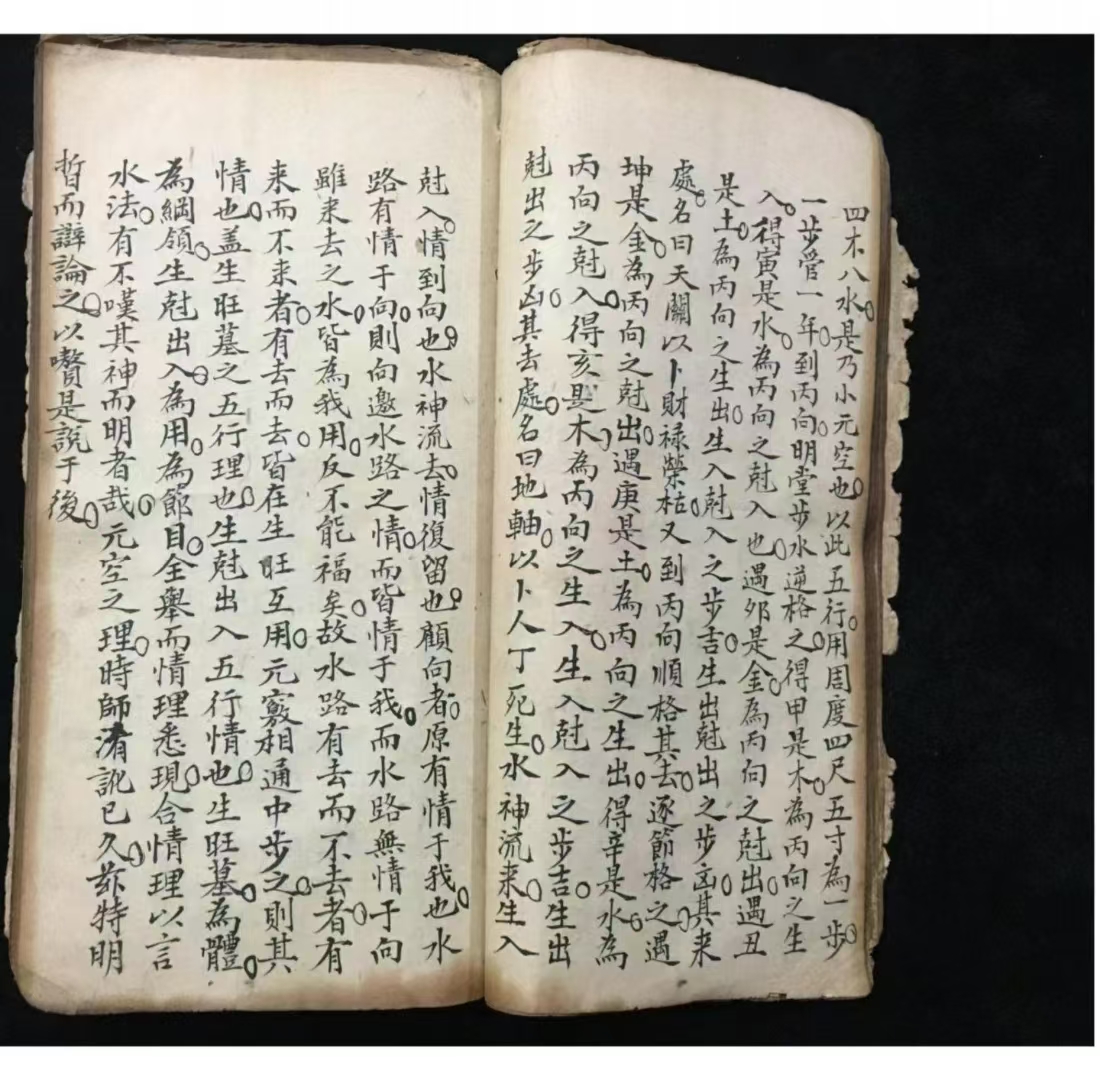 四木八水是乃小元空也以此五行用周度四尺五寸為一步
一步管一年到丙向明堂步水逆格之得甲是木為丙向之生
入得寅是水為丙向之尅入也遇夘是金為丙向之尅出遇丑
是土為丙向之生出生入尅入之步吉生出尅出之步凶其来
處名曰天關以卜財禄榮枯又到丙向順格其去逐節格之遇
坤是金為丙向之尅出遇庚是土為丙向之生出得辛是水為
丙向之尅入得亥是木為丙向之生入生入尅入之步吉生出
尅出之步凶其去處名曰地軸以卜人丁死生水神流来生入
尅入情到向也水神流去情復留也顧向者原有情于我也水
路有情于向則向邀水路之情而皆情于我而水路無情于向
雖来去之水皆為我用反不能福矣故水路有去而不去者有
来而不来者有去而去皆在生旺互用元竅相通中步之則其
情也盖生旺墓之五行理也生尅出入五行情也生旺墓為體
為綱領生尅出入為用為節目全舉而情理悉現合情理以言
水法有不嘆其神而明者哉元空之理時師淆訛已久茲特明
晢而辯論之以嚽是説于後